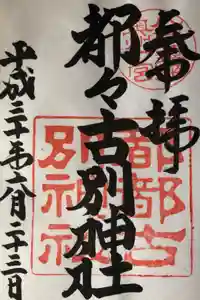 奉拝
都々古別神社
平成三十年六月二十三日
都都古
別神社